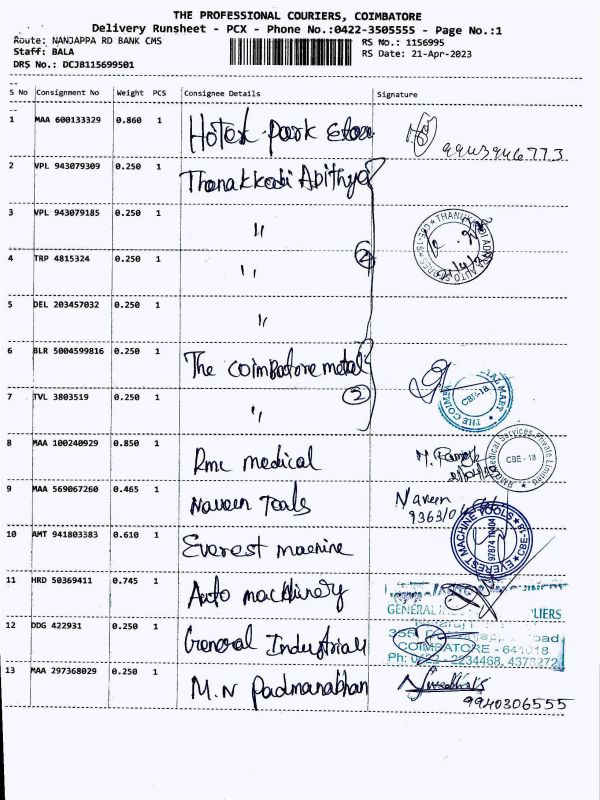 THE PROFESSIONAL COURIERS, COIMBATORE
Delivery Runsheet - PCX - Phone No.:0422-3505555 - Page No.:1
Route: NANJAPPA RD BANK CMS
RS No.: 1156995
Staff: BALA
RS Date: 21-Apr-2023
DRS No.: DCJB115699501
S No Consignment No Weight PCS Consignee Details Signature
1 MAA 600133329 0.860 1 Hotel Park
9943946773
2 VPL 943079309 0.250 1 Thanakkodi Adithya
3 VPL 943079185 0.250 1 "
4 TRP 4815324 0.250 1 "
5 DEL 203457032 0.250 1 "
6 BLR 5004599816 0.250 1 The Coimbatore metal
THE COIM CBE-18
7 TVL 3803519 0.250 1 "
2
8 MAA 100240929 0.850 1 Rmc medical
Medical Services Private Limited CBE - 18
9 MAA 569067260 0.465 1 Naveen Tools Naveen
9363/0
10 AMT 941803383 0.610 1 Everest machine
EVEREST MACHINE TOOLS 98874 10404 CBE-18
11 HRD 50369411 0.745 1 Auto machinery
GENERAL LIERS
12 DDG 422931 0.250 1 General Industrial
Road
COIMBATORE - 641018
Ph: 0422 - 2234468, 4373272
13 MAA 297368029 0.250 1 M.N Padmanabhan
9940306555